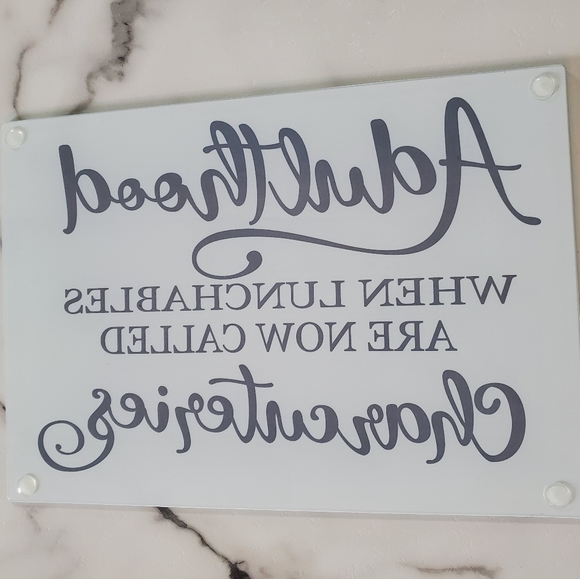 Adulthood
WHEN LUNCHABLES
ARE NOW CALLED
Charcuteries